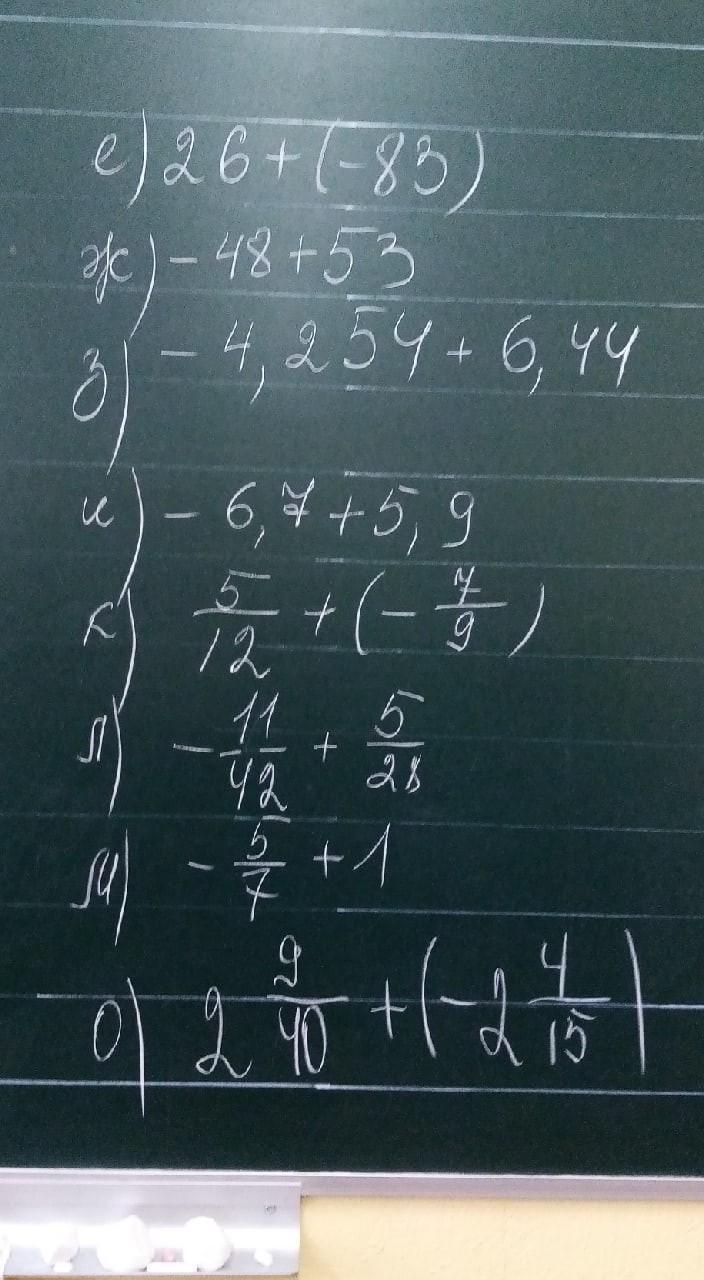 е) 26 + (-83)
ж) - 48 + 53
з) - 4,254 + 6,44
и) - 6,7 + 5,9
к) 5/12 + (- 7/9)
л) - 11/42 + 5/28
м) - 5/7 + 1
о) 2 9/40 + (- 2 4/15)